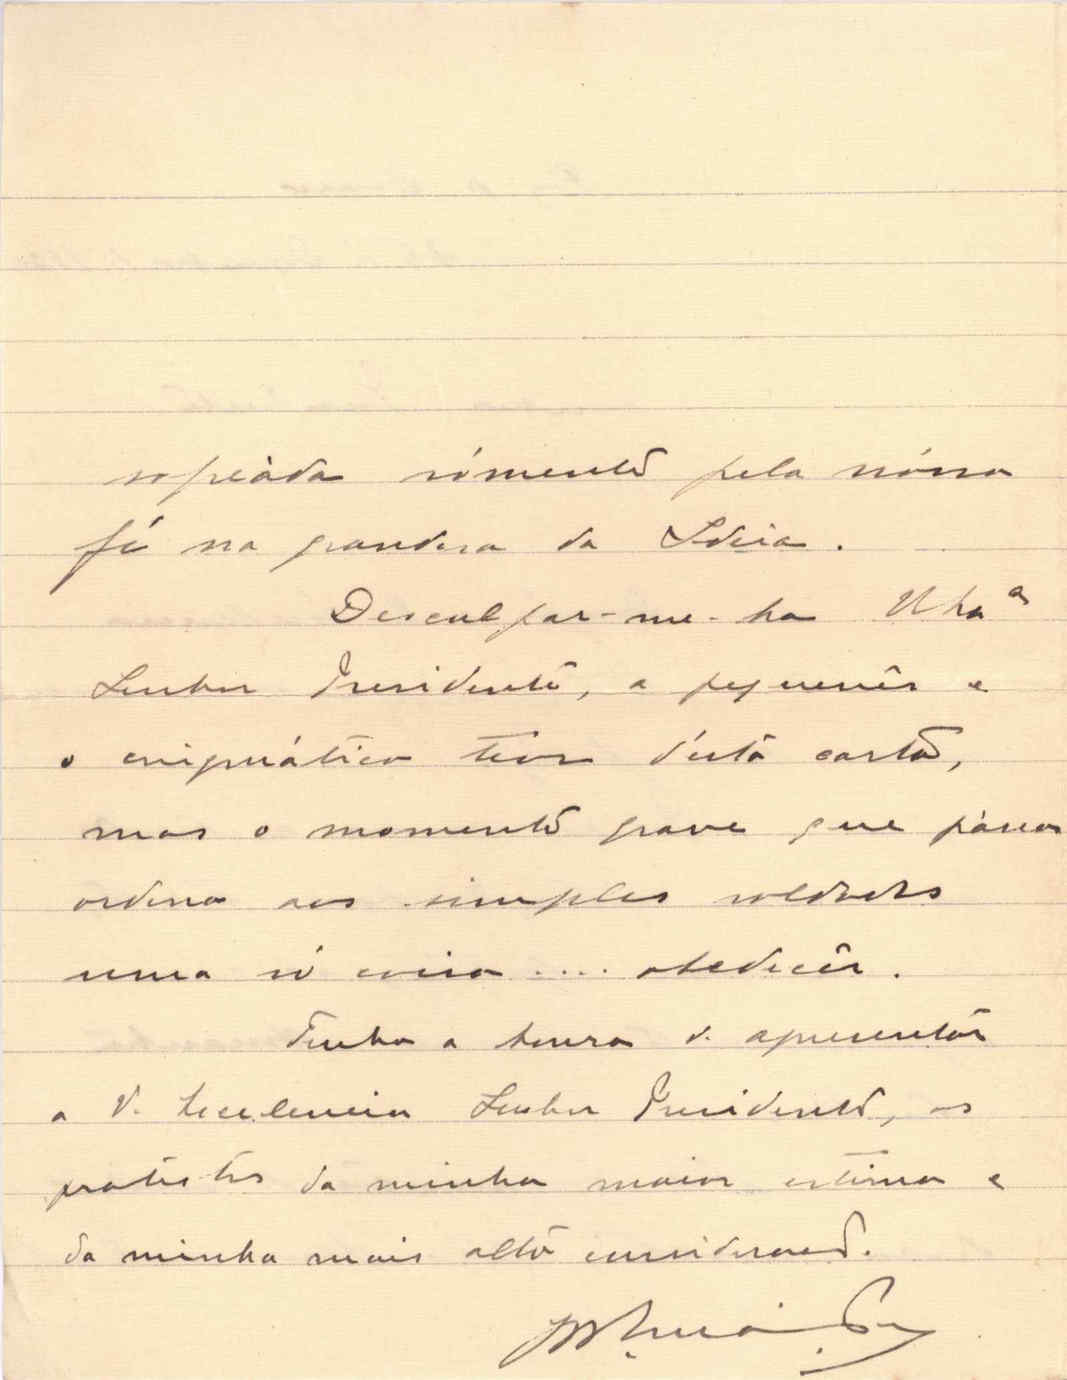 sopeàda sómente pela nóssa
fé na grandesa da Ideia.
Desculpar-me-ha
Senhor Presidente, a pequenês e
o enigmático teor d'esta carta,
mas o momento grave que pàssa
ordena aos simples soldados
uma só coisa .... obedecêr.
Tenho a honra de apresentár
a V. Excelencia Senhor Presidente, os
protestos da minha maior estima e
da minha mais alta consideração.